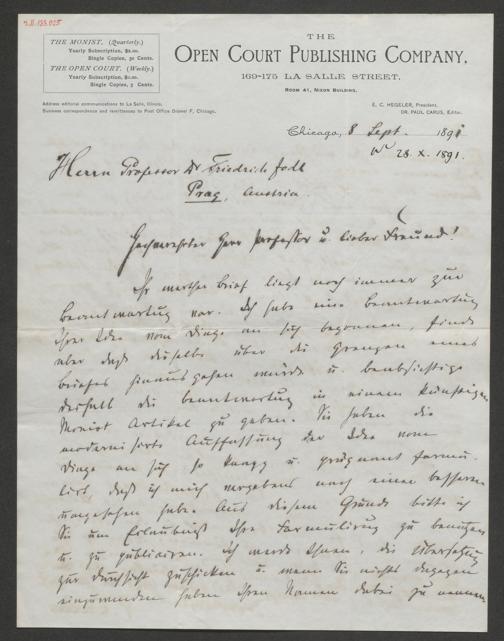 THE MONIST, (Quarterly.)
Yearly Subscription, $2.00.
Single Copies, 50 Cents.
THE OPEN COURT, (Weekly.)
Yearly Subscription, $2.00.
Single Copies, 5 Cents.
THE
OPEN COURT PUBLISHING COMPANY,
169-175 LA SALLE STREET,
ROOM 41, NIXON BUILDING.
Address editorial communications to La Salle, Illinois.
Business correspondence and remittances to Post Office Drawer F, Chicago.
E. C. HEGELER, President.
DR. PAUL CARUS, Editor.
Chicago, 8 Sept. 1891
28. X. 1891.
Herrn Professor Dr Friedrich Jodl
Prag, Austria.
Hochverehrter Herr Professor u. lieber Freund!
Ihr werther Brief liegt noch immer zur
Beantwortung vor. Ich habe eine Beantwortung
Ihrer Idee vom Dinge an sich begonnen, finde
aber daß dieselbe über die Grenzen eines
Briefes hinausgehen würde u. beabsichtige
deshalb die Beantwortung in einem künftigen
Monist Artikel zu geben. Sie haben die
modernisirte Auffassung der Idee vom
Dinge an sich so knapp u. prägnant formu-
lirt daß ich mich vergebens nach einer besseren
umgesehen habe. Aus diesem Grunde bitte ich
Sie um Erlaubniß Ihre Formulirung zu benutzen
u. zu publiciren. Ich werde Ihnen die Übersetzung
zur Durchsicht zuschicken u. wenn Sie nichts dagegen
einzuwenden haben Ihren Namen dabei zu nennen